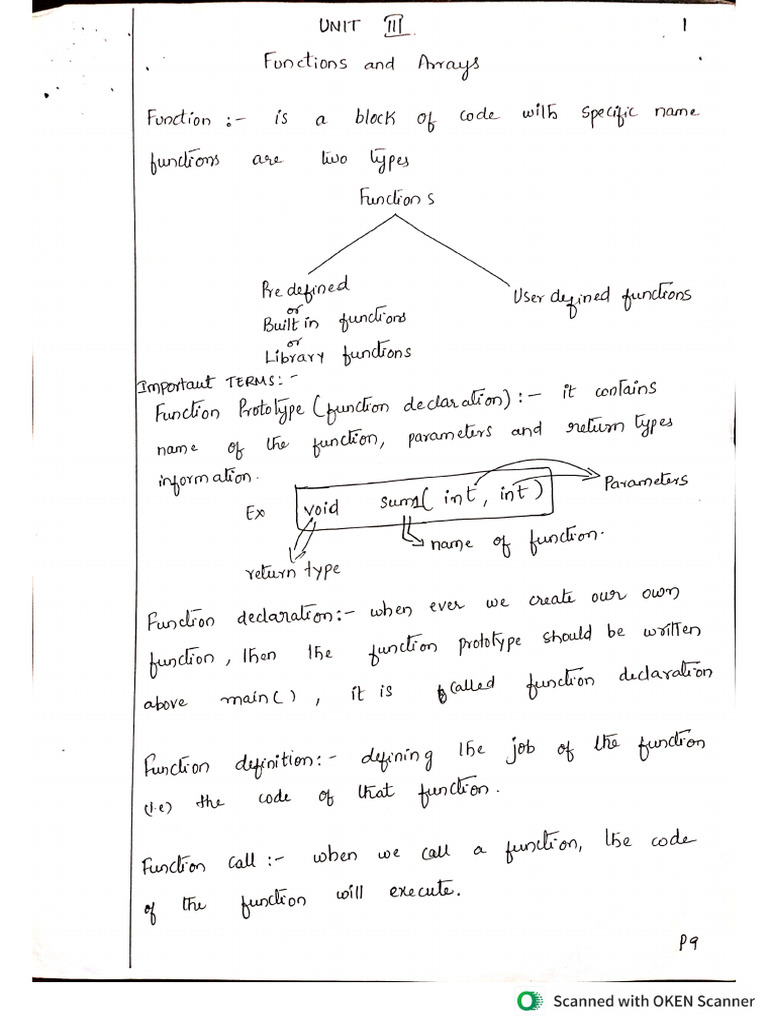 UNIT III 1
Functions and Arrays
Function :- is a block of code with specific name
functions are two types
Functions
Pre defined
or
Built in functions
or
Library functions
User defined functions
Important TERMS:-
Function Prototype (function declaration) :- it contains
name of the function, parameters and return types
information.
Ex void sum1( int, int )
Parameters
name of function.
return type
Function declaration:- when ever we create our own
function, then the function prototype should be written
above main( ), it is called function declaration
Function definition:- defining the job of the function
(i.e) the code of that function.
Function call :- when we call a function, the code
of the function will execute.
P9
Scanned with OKEN Scanner